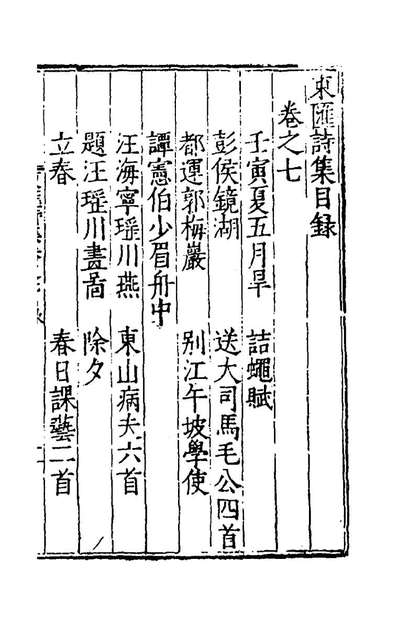 東匯詩集目録
卷之七
壬寅夏五月旱　詰蠅賦
彭侯鏡湖　送大司馬毛公四首
都運郭梅巖　别江午坡學使
譚憲伯少眉舟中
汪海寧瑶川燕　東山病夫六首
題汪瑶川畵啚　除夕
立春　春日課藝二首